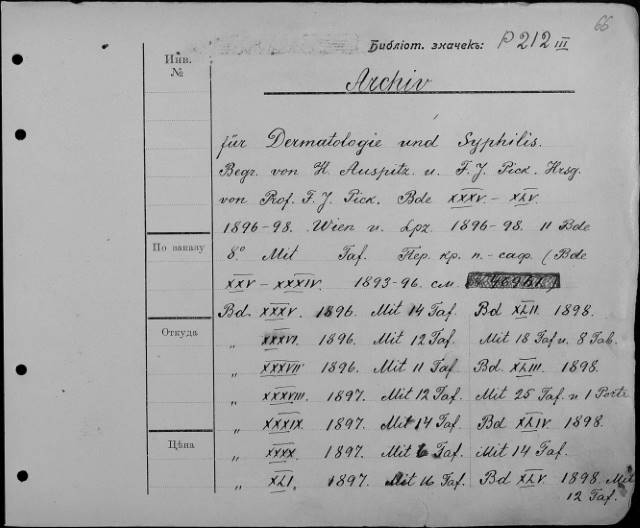 66
Библіот. значекъ: P 212 III
Инв.
№
Archiv
für Dermatologie und Syphilis.
Begr. von H. Auspitz u. F. J. Pick. Hrsg.
von Prof. F. J. Pick. Bde XXXV. – XLV.
1896-98. Wien u. Lpz. 1896-98. 11 Bde
По заказу
8.º Mit Taf. Пер. кр. п.-саф. (Bde
XXV – XXXIV. 1893-96. см.
Bd. XXXV. 1896. Mit 14 Taf. Bd XLII. 1898.
Откуда
„ XXXVI. 1896. Mit 12 Taf. Mit 18 Taf u. 8 Tab.
„ XXXVII. 1896. Mit 11 Taf. Bd. XLIII. 1898.
„ XXXVIII. 1897. Mit 12 Taf. Mit 25 Taf. u 1 Porte
„ XXXIX. 1897. Mit 14 Taf. Bd XLIV. 1898.
Цѣна
„ XXXX. 1897. Mit 6 Taf. Mit 14 Taf.
„ XLI. 1897. Mit 16 Taf. Bd XLV. 1898. Mit
12 Taf.